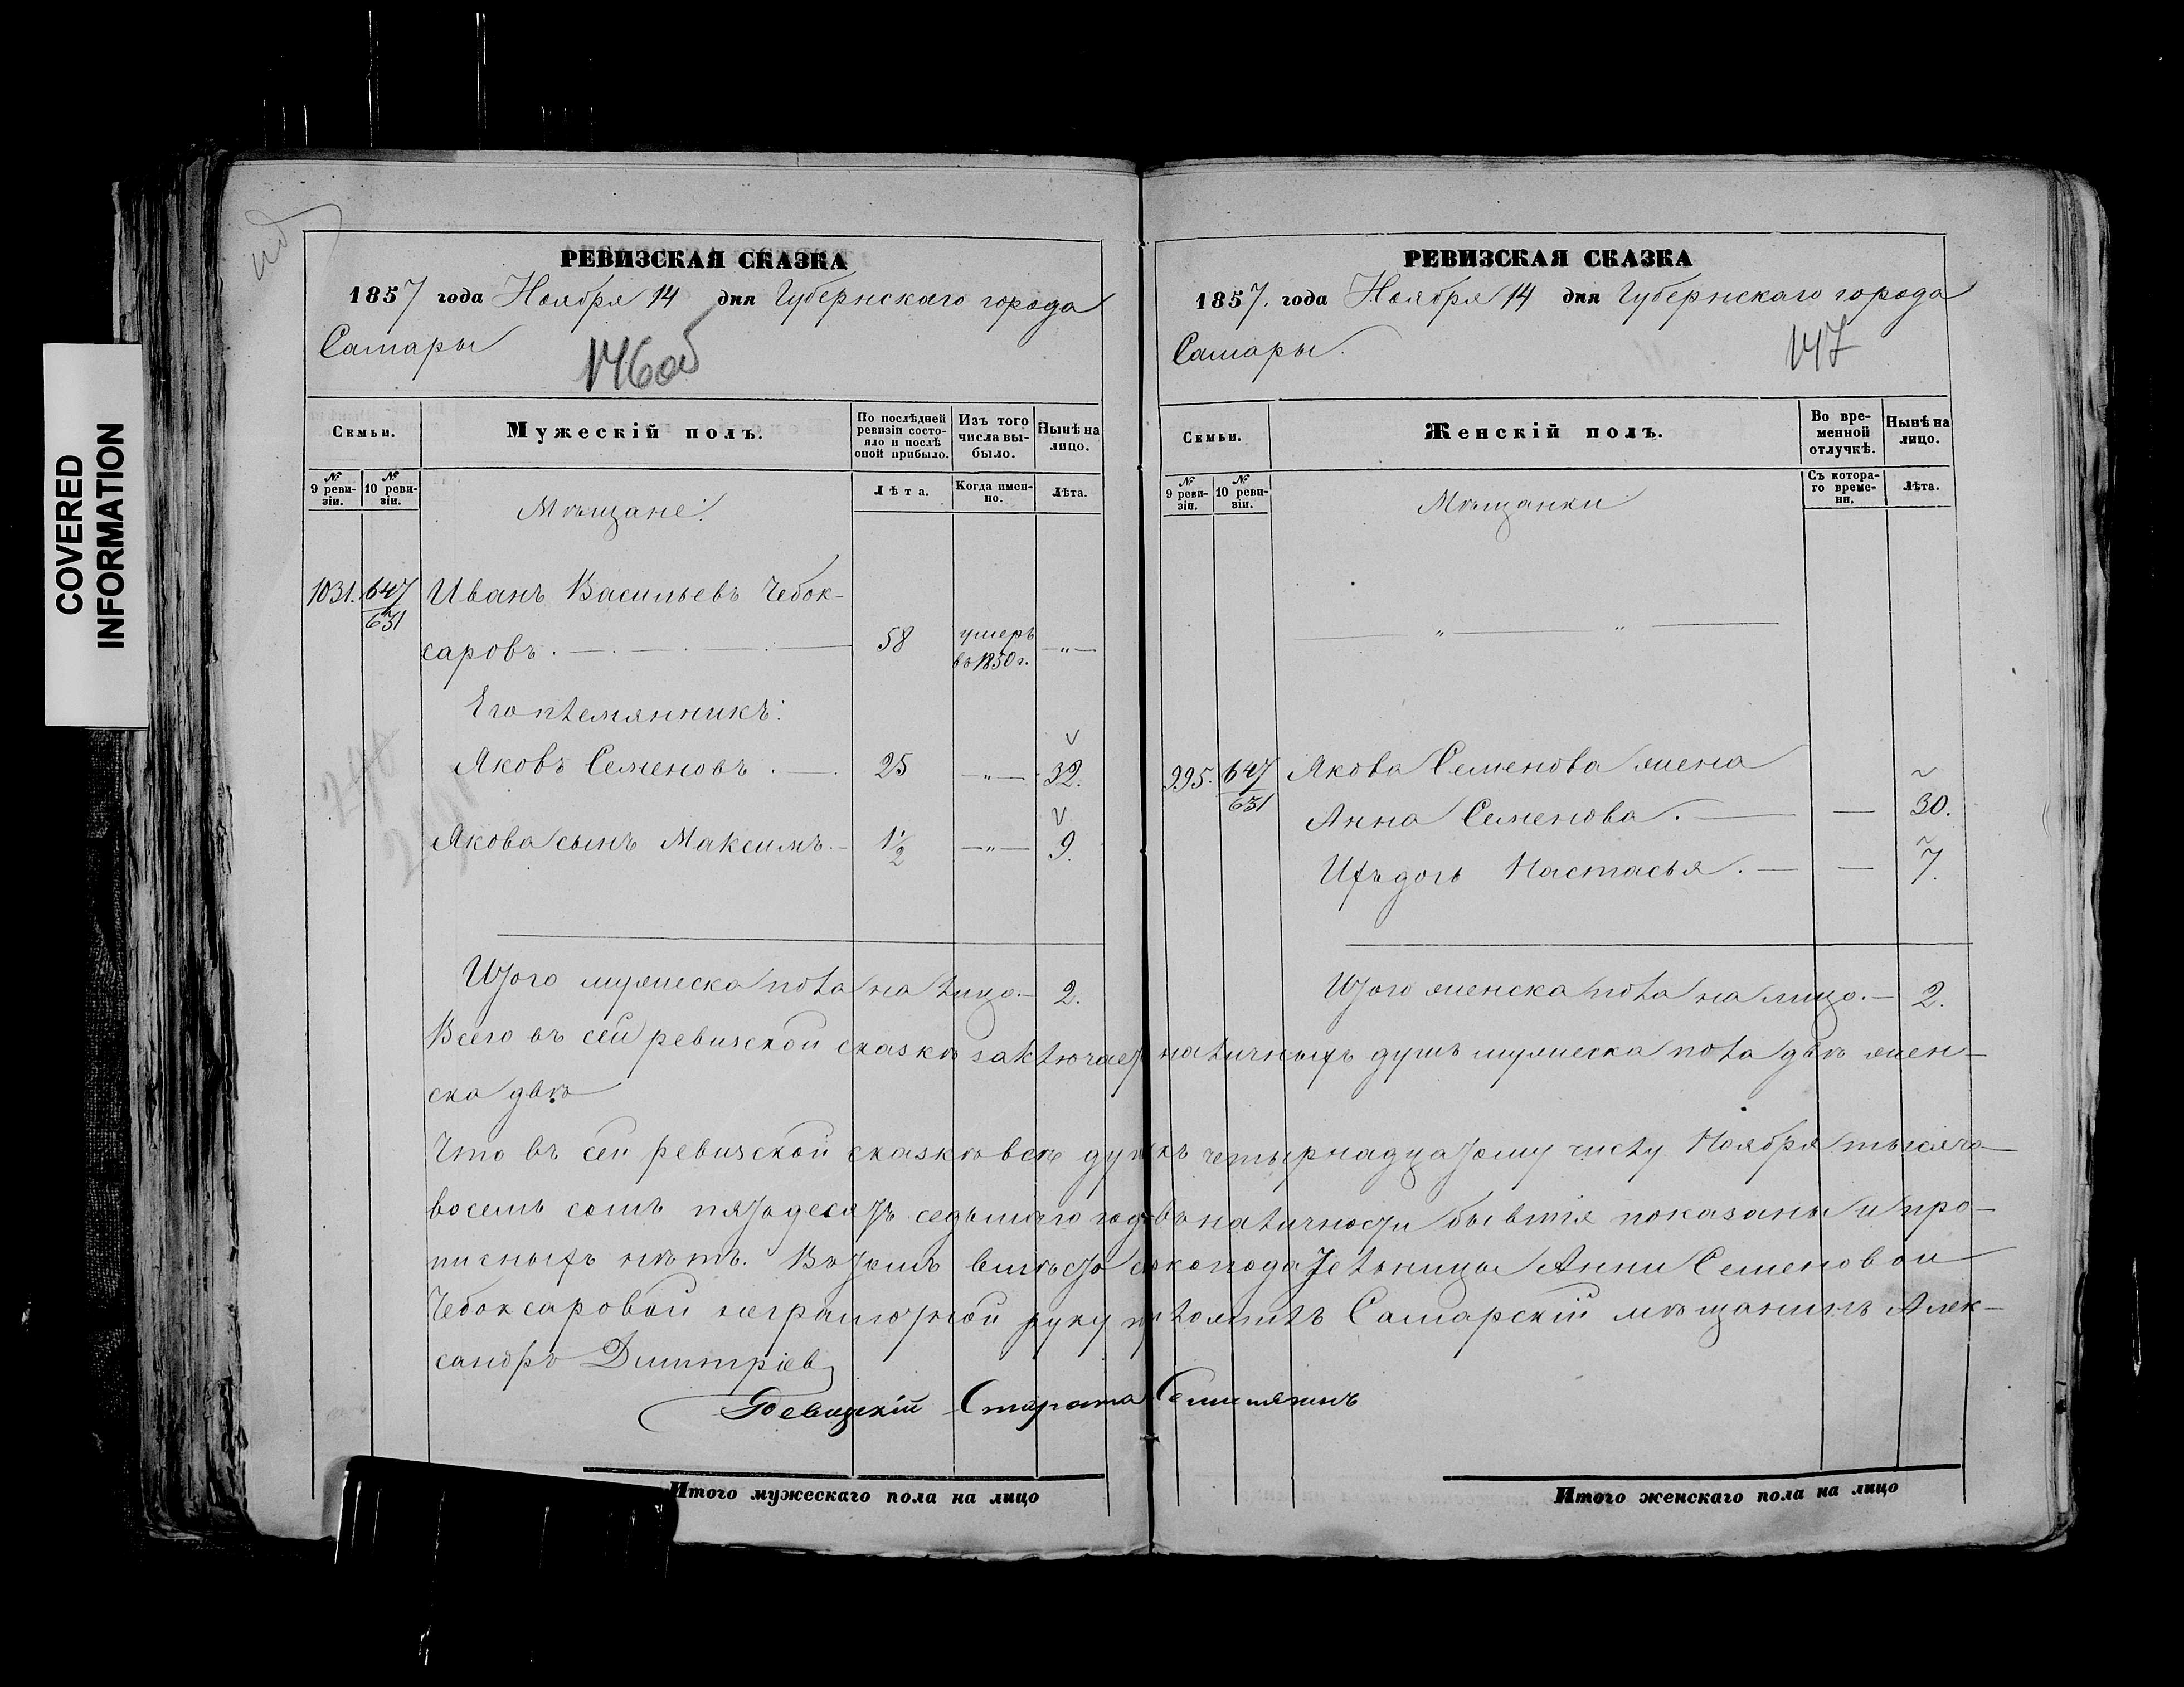 COVERED
INFORMATION
РЕВИЗСКАЯ СКАЗКА
1857 года Ноября 14 дня Губернскаго города
Самары
146об
Семьи.
Мужескій полъ.
По послѣдней ревизіи состояло и послѣ оной прибыло.
Изъ того числа выбыло.
Нынѣ на лицо.
№ 9 ревизіи.
№ 10 ревизіи.
Мѣщане:
Лѣта.
Когда именно.
Лѣта.
1031. 647/631 Иванъ Васильевъ Чебок-
саровъ. 58 умеръ въ 1850 г. — „ —
Его племянникъ:
Яковъ Семеновъ. 25 — „ — 32.
Якова сынъ Максимъ. 1 1/2 — „ — 9.
Итого мужеска пола на лицо. — 2.
РЕВИЗСКАЯ СКАЗКА
1857. года Ноября 14 дня Губернскаго города
Самары.
147
Семьи.
Женскій полъ.
Во временной отлучкѣ.
Нынѣ на лицо.
№ 9 ревизіи.
№ 10 ревизіи.
Мѣщанки
Съ котораго времени.
Лѣта.
— „ — „ —
995. 647/631 Якова Семенова жена
Анна Семенова. — — 30.
Ихъ дочь Настасья. — — 7.
Итого женска пола на лицо. — 2.
Всего въ сей ревизской сказкѣ заключает наличныхъ душъ мужеска пола двѣ жен-
ска двѣ
Что въ сей ревизской сказкѣ всѣ душ къ четырнадцатому числу Ноября тысяча
восемь сотъ пятьдесятъ седьмаго года въ наличности бывшія показаны и про-
писныхъ нѣтъ. Въ томъ вмѣсто сказкоподательницы Анны Семеновой
Чебоксаровой неграмотной руку приложилъ Самарскій мѣщанинъ Алек-
сандръ Дмитріев
Ревизскій Староста
Итого мужескаго пола на лицо
Итого женскаго пола на лицо